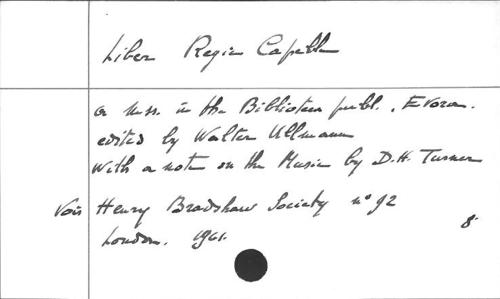 Liber Regie Capelle
a mss. in the Biblioteca publ., Evora.
edited by Walter Ullmann
with a note on the Music by D.H. Turner
Vois Henry Bradshaw Society nº 92
London. 1961.
8º